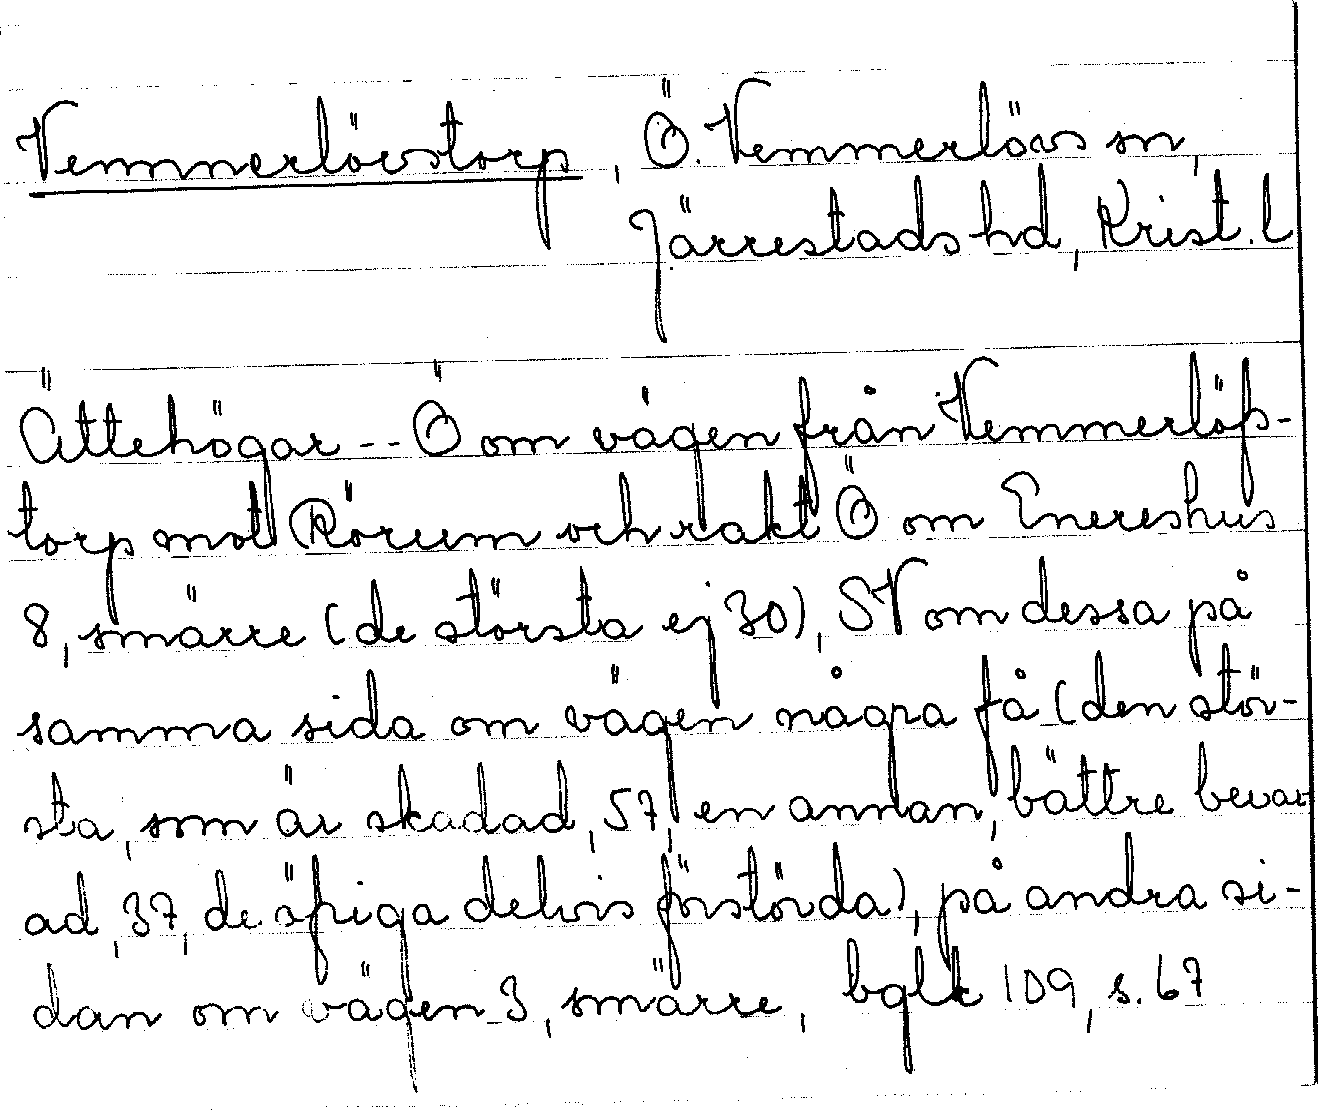 Vemmerlövstorp, Ö. Vemmerlövs sn,
Järrestads hd, Krist. l
Ättehögar -- Ö om vägen från Vemmerlöfs-
torp mot Rörum och rakt Ö om Enereshus
8, smärre (de största ej 30), SV om dessa på
samma sida om vägen några få (den stör-
sta, som är skadad, 57, en annan, bättre bevar
ad, 37, de öfriga delvis förstörda), på andra si-
dan om vägen 3, smärre, bglk 109, s. 67